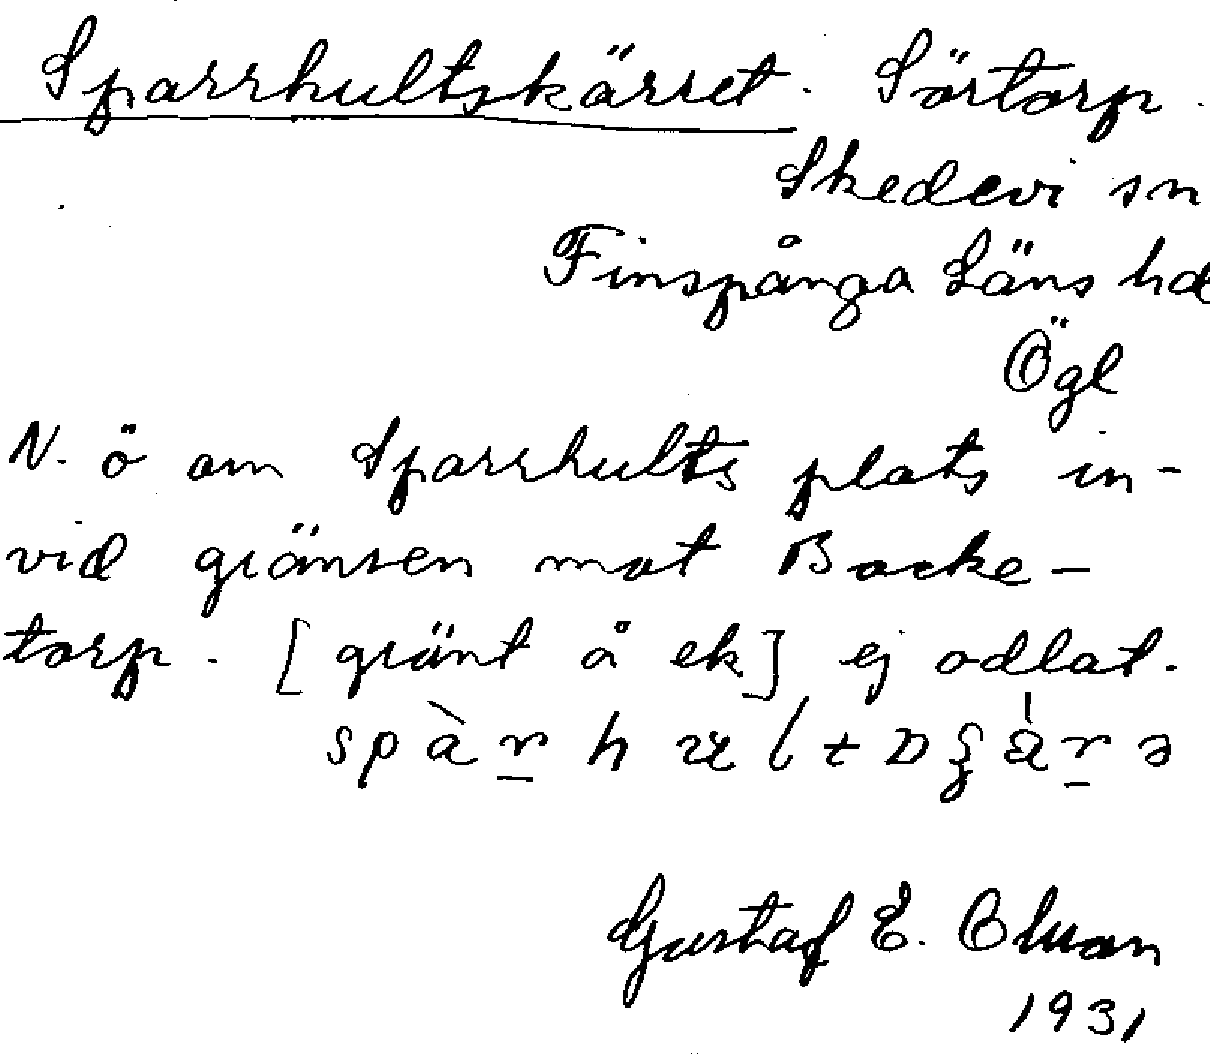 Sparrhultskärret. Sörtorp.
Skedevi sn
Finspånga Läns hd
Ögl
N. ö om Sparrhults plats in-
vid gränsen mot Backe-
torp. [gränt å ek] ej odlat.
Gustaf E. Olsson
1931